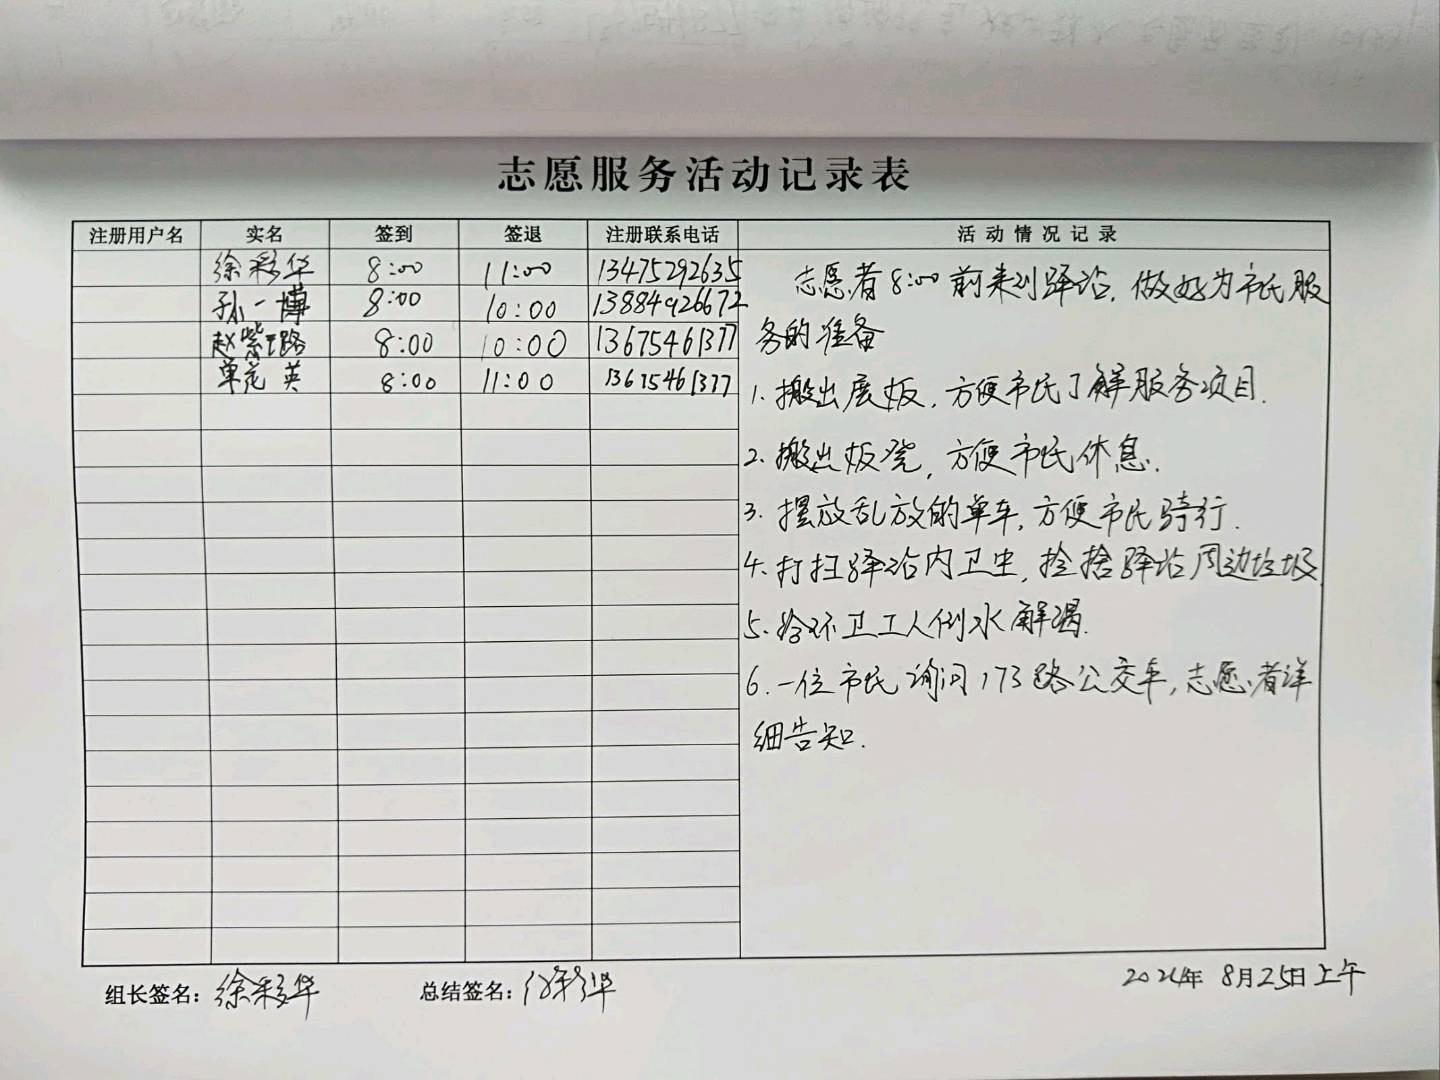 志愿服务活动记录表
注册用户名 实名 签到 签退 注册联系电话 活动情况记录
徐彩华 8:00 11:00 13475292635
孙一博 8:00 10:00 13884926672
赵紫路 8:00 10:00 13675461377
单花英 8:00 11:00 13675461377
志愿者8:00前来到驿站,做好为市民服
务的准备
1.搬出展板,方便市民了解服务项目.
2.搬出板凳,方便市民休息.
3.摆放乱放的单车,方便市民骑行.
4.打扫驿站内卫生,捡拾驿站周边垃圾
5.给环卫工人倒水解渴.
6.一位市民询问173路公交车,志愿者详
细告知.
组长签名:徐彩华 总结签名:徐彩华 2024年8月25日上午